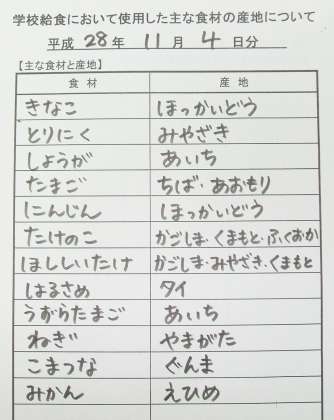 学校給食において使用した主な食材の産地について
平成 28 年 11 月 4 日分
【主な食材と産地】
食材 産地
きなこ ほっかいどう
とりにく みやざき
しょうが あいち
たまご ちば・あおもり
にんじん ほっかいどう
たけのこ かごしま・くまもと・ふくおか
ほししいたけ かごしま・みやざき・くまもと
はるさめ タイ
うずらたまご あいち
ねぎ やまがた
こまつな ぐんま
みかん えひめ